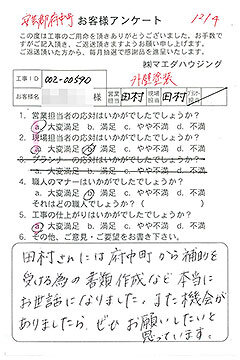 安芸郡府中町 お客様アンケート 12/4
この度は工事のご用命を頂きありがとうございました。お手数で
すがご記入頂き、ご返送頂きますようお願い申し上げます。
ご返送頂いた方から、毎月抽選で感謝品を進呈いたします。
㈱マエダハウジング
外壁塗装
工事ID 002-00590 様 営業担当 田村 現場担当 田村
1. 営業担当者の応対はいかがでしたでしょうか?
a. 大変満足 b. 満足 c. やや不満 d. 不満
2. 現場担当者の応対はいかがでしたでしょうか?
a. 大変満足 b. 満足 c. やや不満 d. 不満
3. プランナーの応対はいかがでしたでしょうか?
a. 大変満足 b. 満足 c. やや不満 d. 不満
4. 職人のマナーはいかがでしたでしょうか?
a. 大変満足 b. 満足 c. やや不満 d. 不満
それはどの職人でしょうか?( )
5. 工事の仕上がりはいかがでしたでしょうか?
a. 大変満足 b. 満足 c. やや不満 d. 不満
6. その他、ご意見・ご要望をお書き下さい。
田村さんには府中町から補助を
受ける為の書類作成など本当に
お世話になりました。また機会が
ありましたら、ぜひお願いしたいと
思っています。